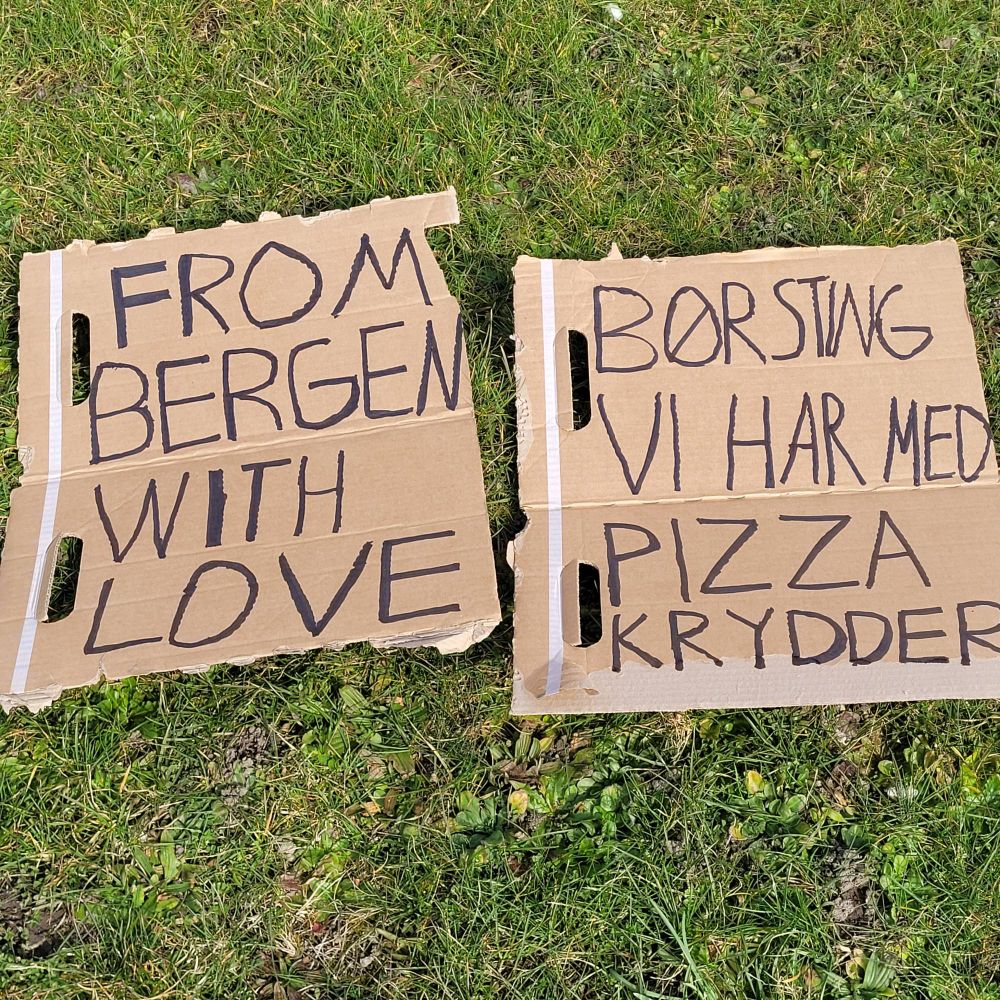 FROM
BERGEN
WITH
LOVE
BØRSTING
VI HAR MED
PIZZA
KRYDDER